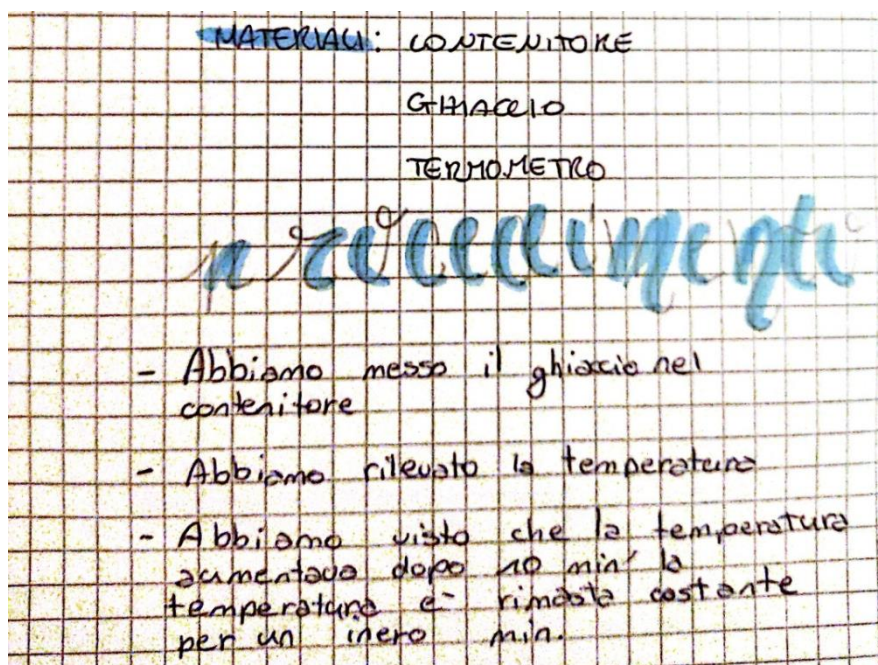 MATERIALI: CONTENITORE
GHIACCIO
TERMOMETRO
procedimento
- Abbiamo messo il ghiaccio nel
contenitore
- Abbiamo rilevato la temperatura
- Abbiamo visto che la temperatura
aumentava dopo 10 min la
temperatura è rimasta costante
per un inero min.